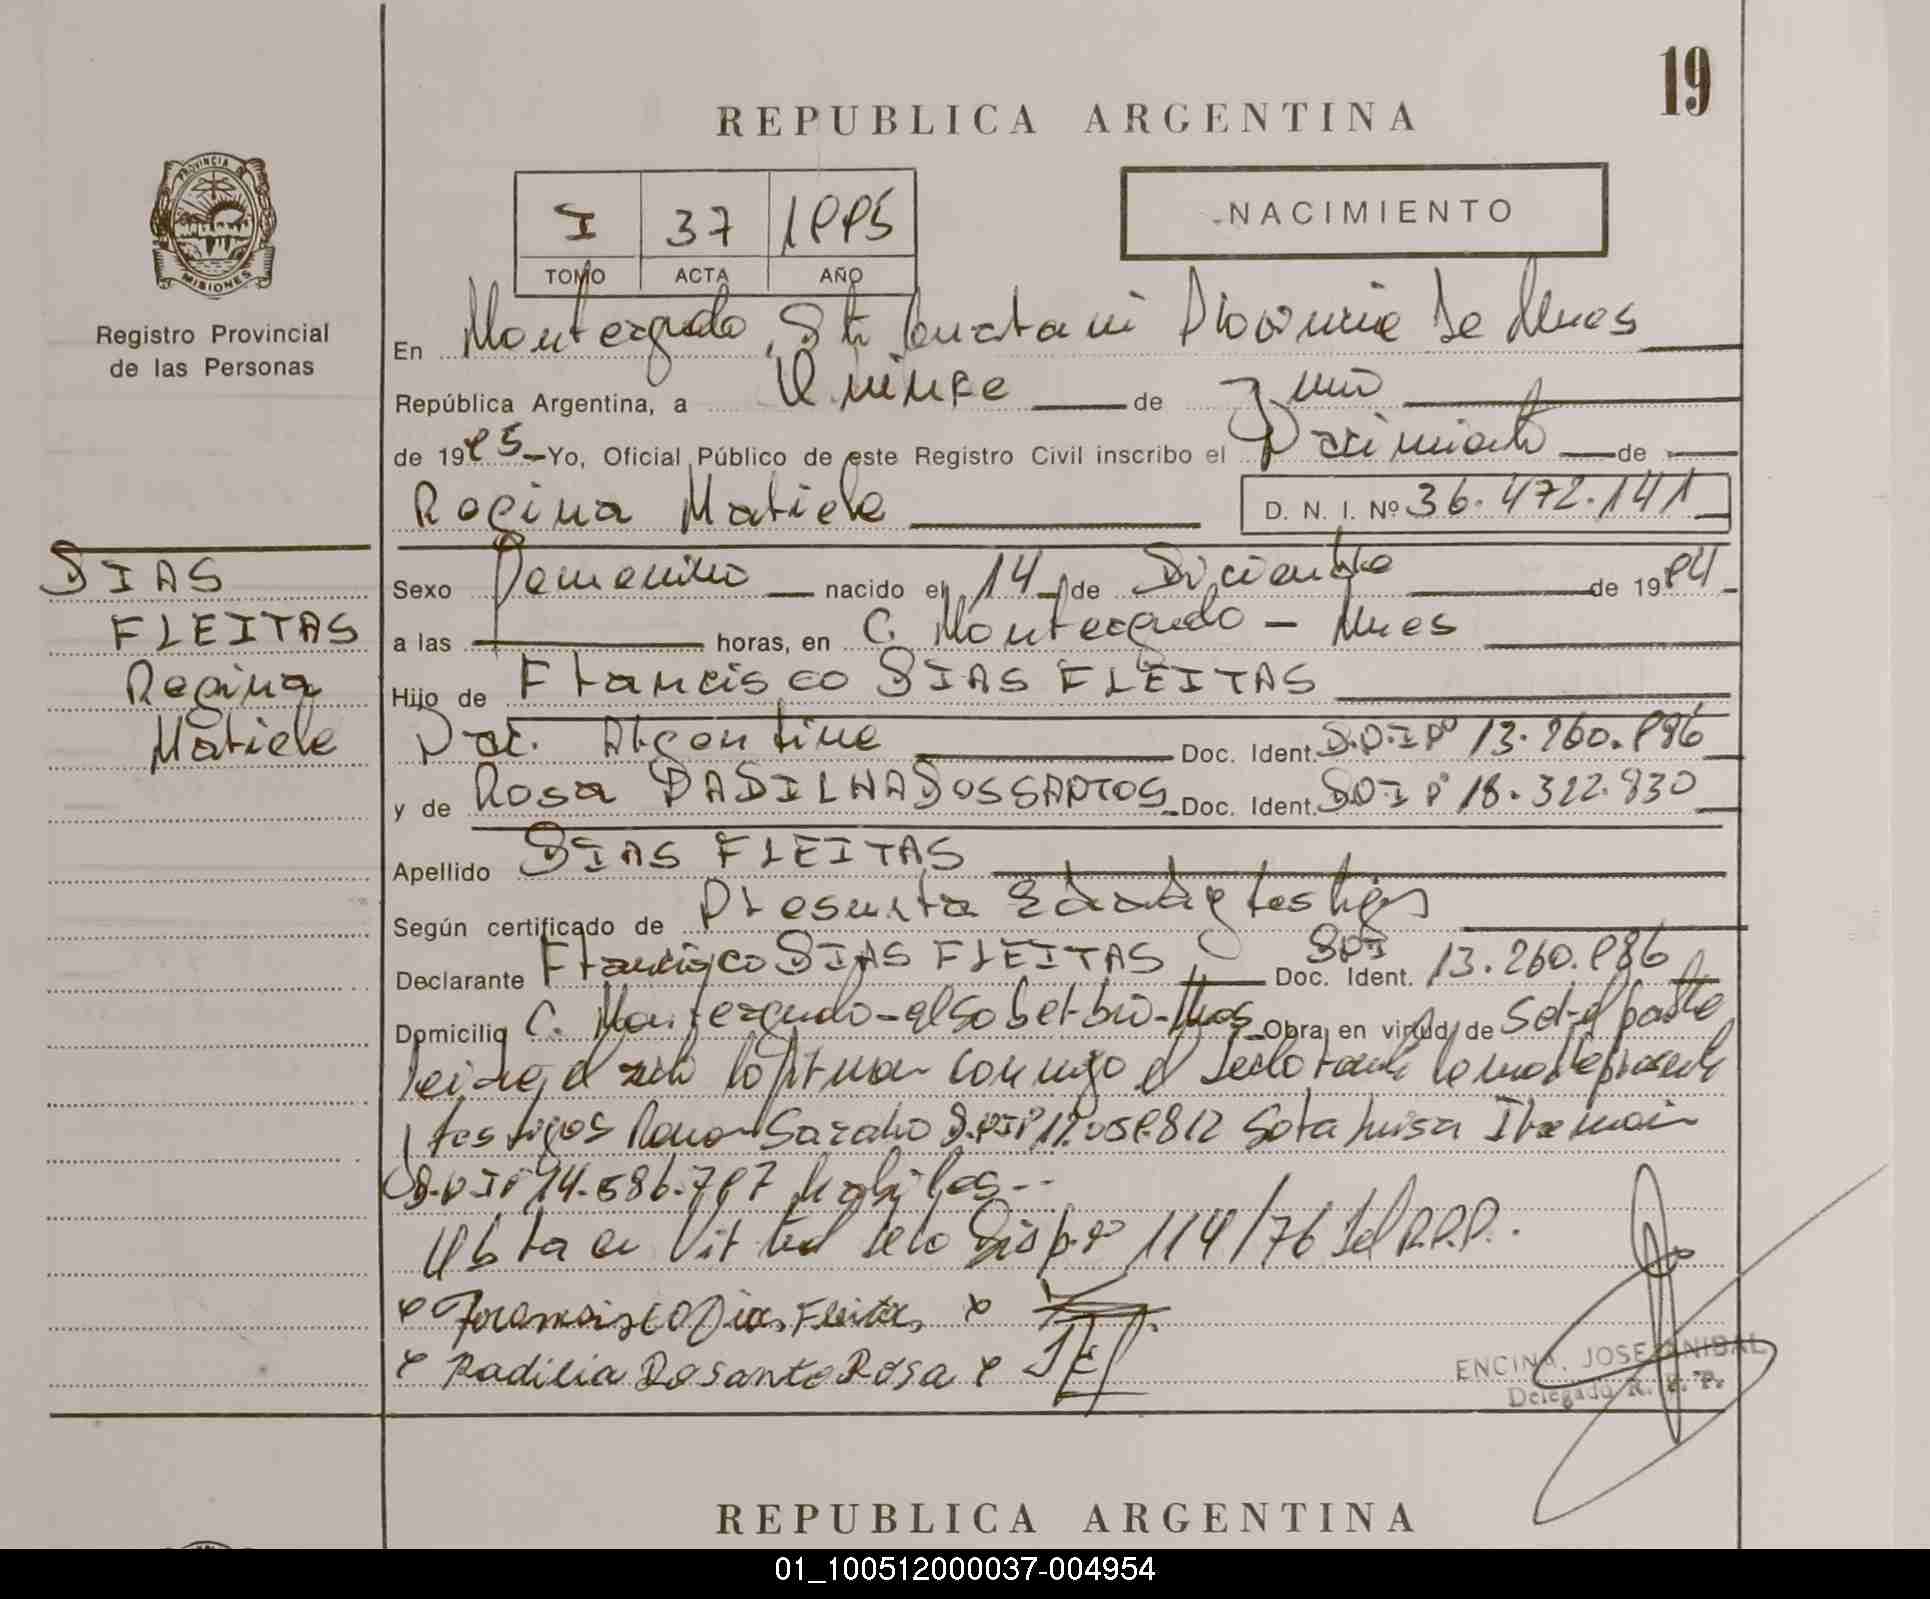 19
REPUBLICA ARGENTINA
PROVINCIA DE
MISIONES
Registro Provincial
de las Personas
I 37 1995
TOMO ACTA AÑO
NACIMIENTO
En Monteagudo, Provincia de Mnes
República Argentina, a Quince de Junio
de 1995 Yo, Oficial Público de este Registro Civil inscribo el Nacimiento de
Regina Mabiele D. N. I. Nº 36.472.141
DIAS
FLEITAS
Regina
Mabiele
Sexo Femenino nacido el 14 de Diciembre de 1994
a las horas, en C. Monteagudo - Mnes
Hijo de Francisco DIAS FLEITAS
Nac. Argentina Doc. Ident. D.N.I Nº 13.260.986
y de Rosa PADILHA DOS SANTOS Doc. Ident. D.N.I Nº 18.322.930
Apellido DIAS FLEITAS
Según certificado de Presunta Edad y testigos
Declarante Francisco DIAS FLEITAS Doc. Ident. DNI 13.260.986
Domicilio C. Monteagudo Obra en virtud de ser el padre
conmigo el declarante la madre
testigos Ramon D.N.I Nº Luisa
D.N.I Nº habiles
Obra en Virtud de la Disp. Nº 114/76 del R.P.P.
x Francisco Dias Fleitas x
x Padilia Dosanto Rosa x
ENCINA, JOSE ANIBAL
Delegado R. P. P.
REPUBLICA ARGENTINA
01_100512000037-004954